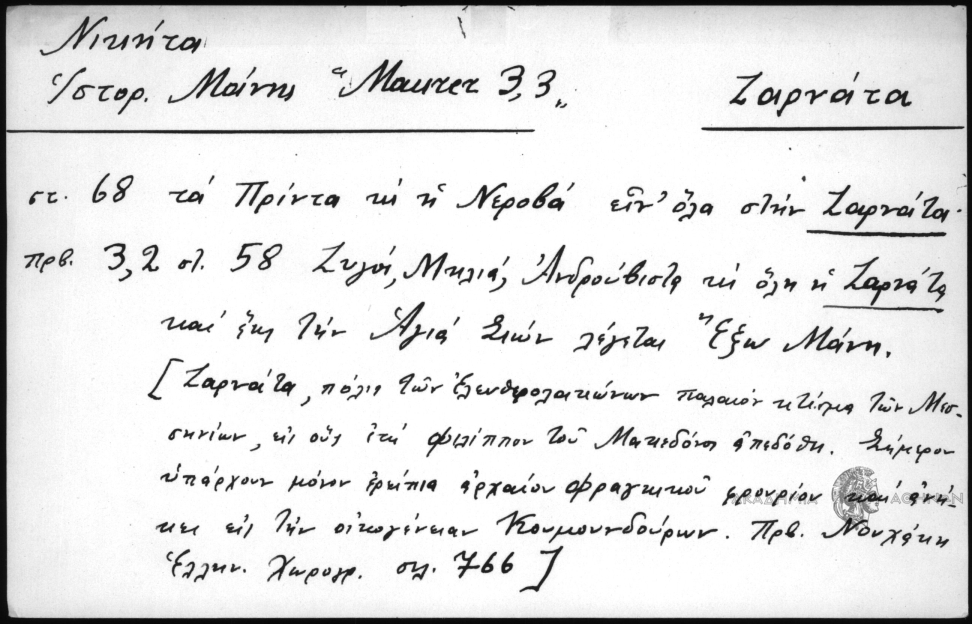 Νικήτα
Ἱστορ. Μάνης "Maurer 3,3„ Ζαρνάτα
στ. 68 τά Πρίντα κι ἡ Νεροβά εἶν' ὅλα στήν Ζαρνάτα.
πρβ. 3,2 στ. 58 Ζυγός, Μηλιά, Ἀνδρούβιστα κι ὅλη ἡ Ζαρνάτα
καί ἕως τήν Ἁγιά Σιών λέγεται Ἔξω Μάνη.
[Ζαρνάτα, πόλις τῶν Ἐλευθερολακώνων παλαιόν κτίσμα τῶν Μεσ-
σηνίων, εἰς οὕς ἐπί Φιλίππου τοῦ Μακεδόνος ἀπεδόθη. Σήμερον
ὑπάρχουν μόνον ἐρείπια ἀρχαίου φραγκικοῦ φρουρίου καί ἀνή-
κει εἰς τήν οἰκογένειαν Κουμουνδούρων. Πρβ. Νουχάκη
Ἑλλην. Χωρογρ. σελ. 766]
ΑΚΑΔΗΜΙΑ ΑΘΗΝΩΝ